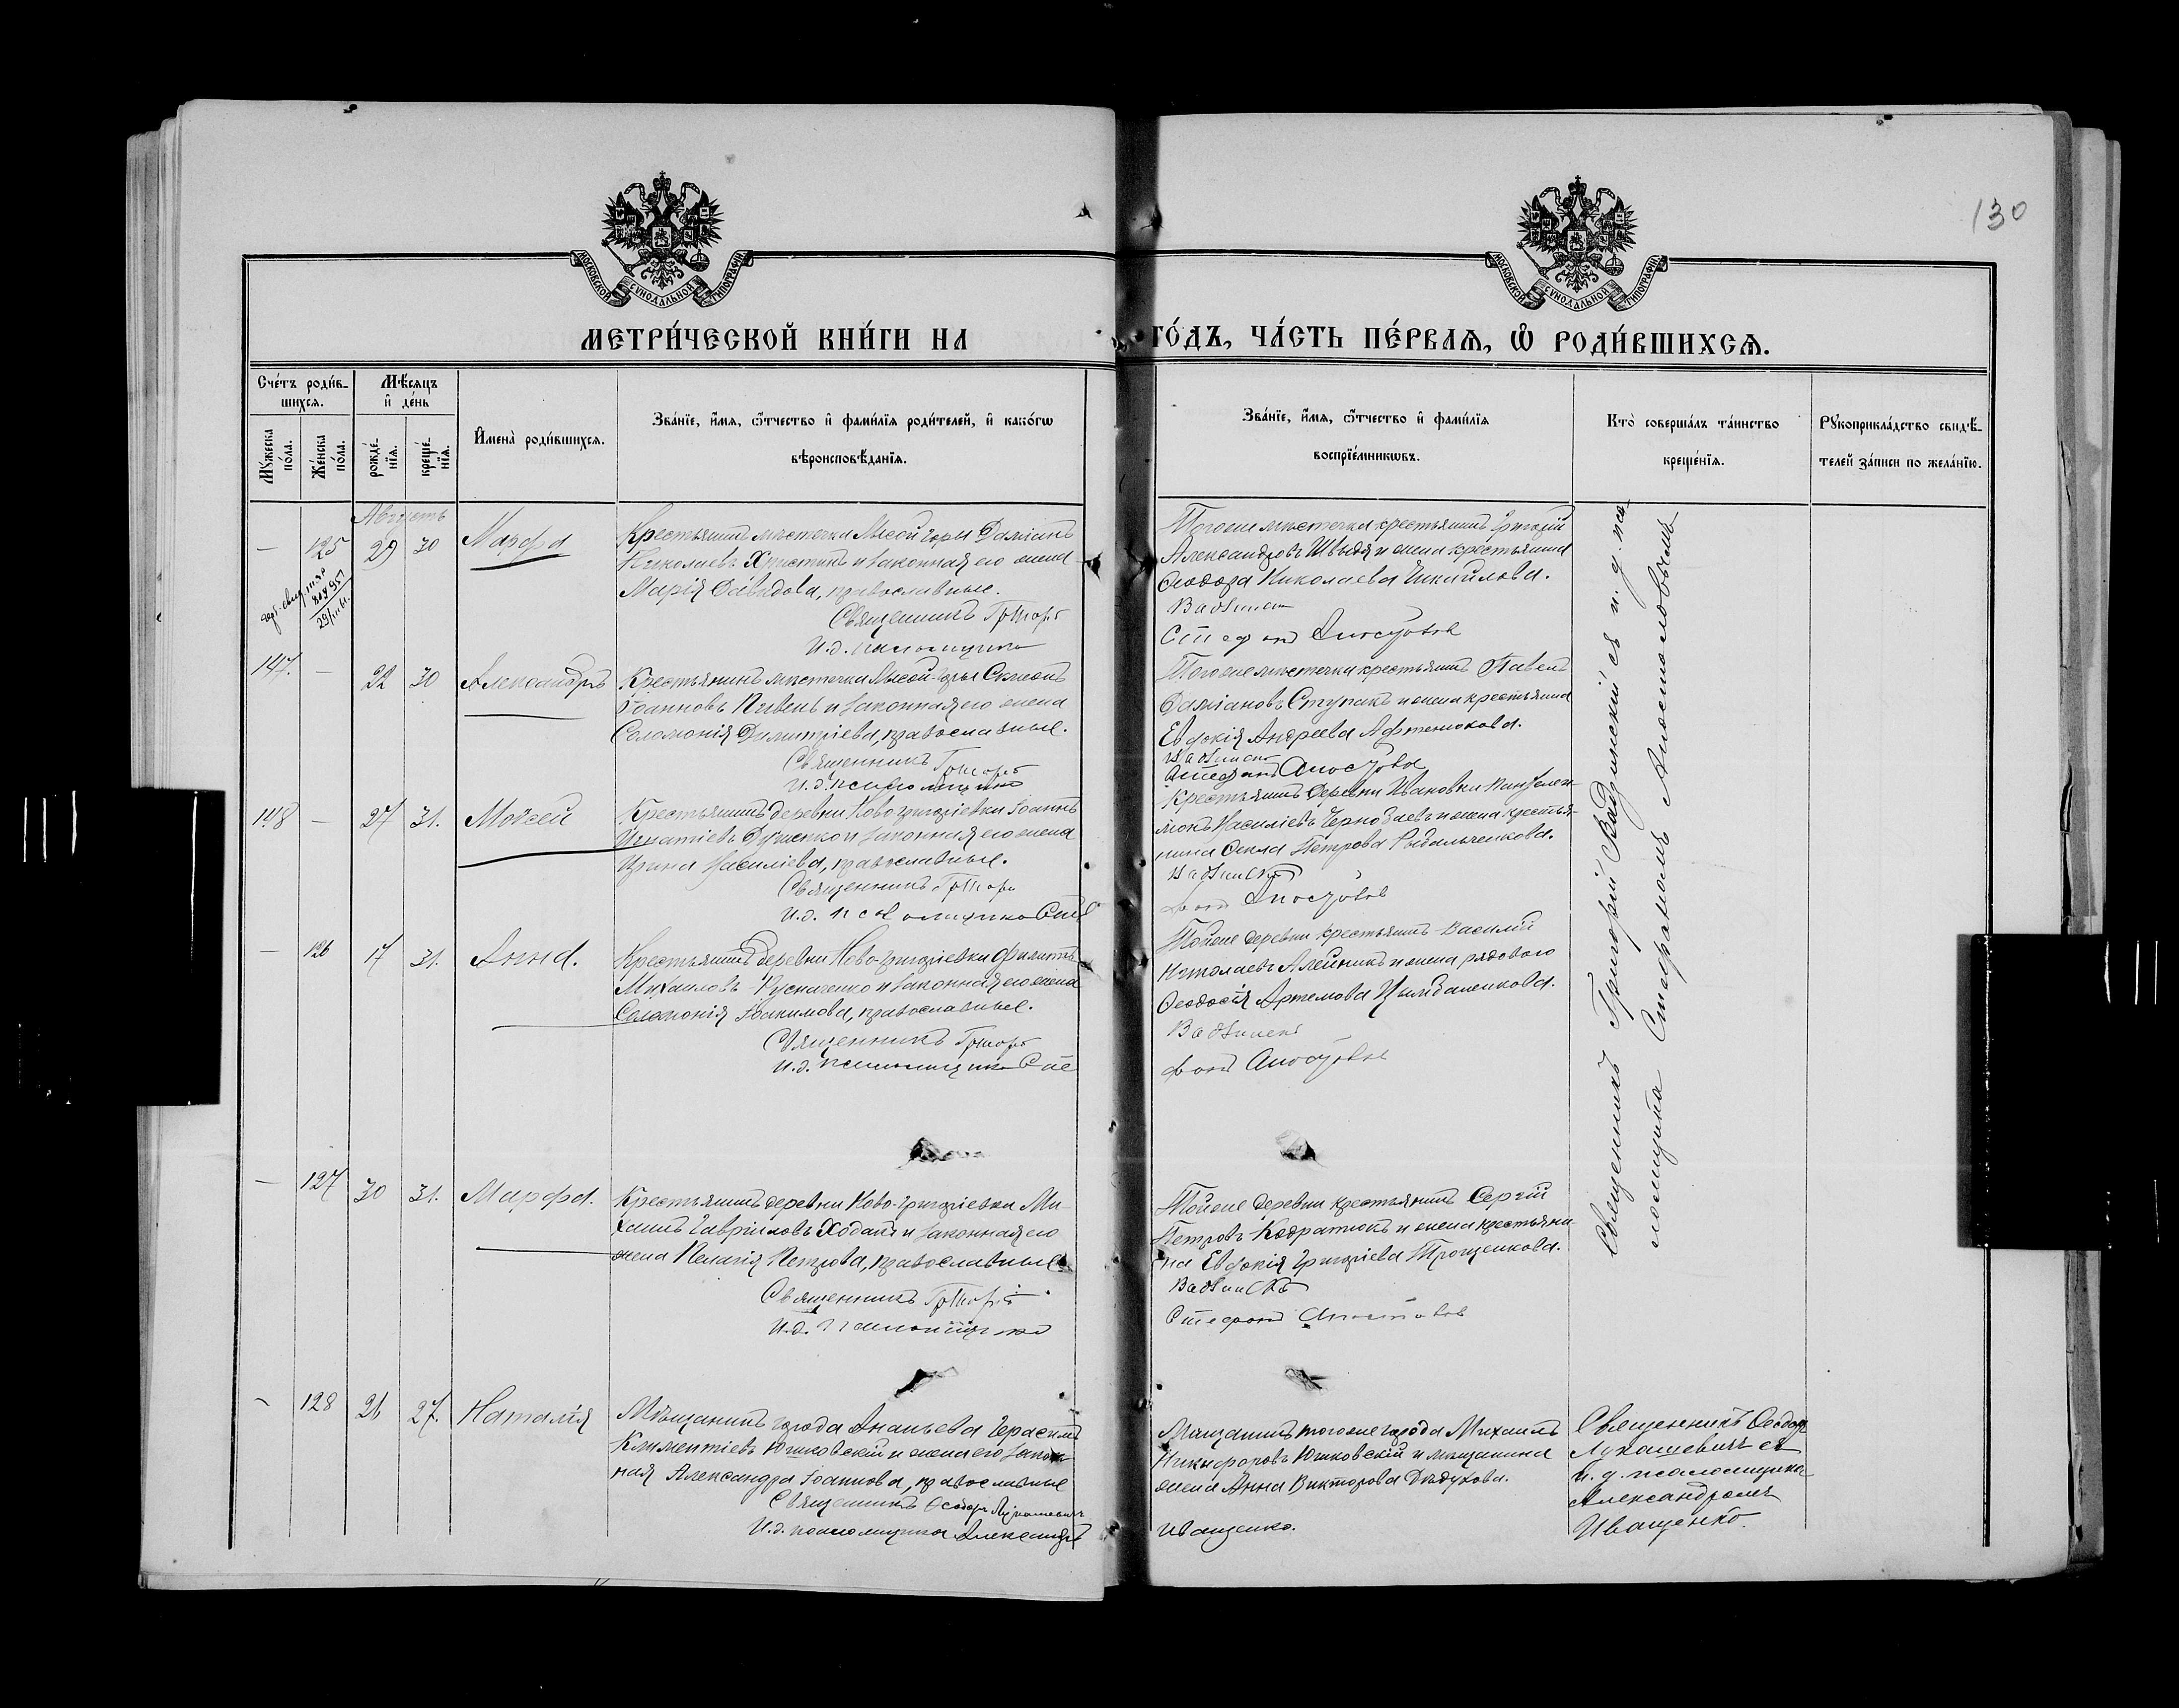 130
МОСКОВСКОЙ СѴНОДАЛЬНОЙ ТИПОГРАФІИ
МОСКОВСКОЙ СѴНОДАЛЬНОЙ ТИПОГРАФІИ
МЕТРИ́ЧЕСКОЙ КНИ́ГИ НА ГО́ДЪ, ЧА́СТЬ ПЕ́РВАѦ, Ѽ РОДИ́ВШИХСѦ.
Сче́тъ роди́в-
шихсѧ.
Мꙋ́жеска по́ла.
Же́нска по́ла.
Мѣ́сѧцъ
и҆ де́нь
рожде́-
нїѧ.
креще́-
нїѧ.
И҆мена̀ роди́вшихсѧ.
Зва́нїе, и҆́мѧ, ѻ҆́тчество и҆ фами́лїѧ роди́телей, и҆ како́гѡ
вѣроисповѣ́данїѧ.
Зва́нїе, и҆́мѧ, ѻ҆́тчество и҆ фами́лїѧ
воспрїе́мникѡвъ.
Кто̀ соверша́лъ та́инство
креще́нїѧ.
Рꙋкоприкла́дство свидѣ́-
телей за́писи по жела́нїю.
Августъ
— 125 29 30 Марфа
29/III 61.
Крестьянинъ мѣстечка Лысой Горы Даміанъ
Николаевъ Христинъ и законная его жена
Марія Давидова, православные.
Священникъ Григорій
И.д. псаломщика
Того же мѣстечка крестьянинъ Григорій
Александровъ Швыдя и жена крестьянина
Ѳеодора Николаева Шкайлова.
Вадзинскій
Стефанъ Апостоловъ
147. — 22 30 Александръ
Крестьянинъ мѣстечка Лысой-Горы Симеонъ
Іоанновъ Пивень и законная его жена
Соломонія Димитріева, православные.
Священникъ Григорій
И.д. псаломщика
Того же мѣстечка крестьянинъ Павелъ
Даміановъ Ступакъ и жена крестьянина
Евдокія Андреева Афтенюкова.
Вадзинскій
Стефанъ Апостоловъ
148 — 27 31. Моѵсей
Крестьянинъ деревни Ново-Григоріевки Іоаннъ
Игнатіевъ Душенко и законная его жена
Ирина Василіева, православные.
Священникъ Григорій
И.д. псаломщика Сте
Крестьянинъ деревни Ивановки
Василіевъ Чернобаевъ и жена крестья-
нина Ѳекла Петрова Рыбальченкова.
Вадзинскій
фанъ Апостоловъ
— 126 17 31. Анна.
Крестьянинъ деревни Ново-Григоріевки Филиппъ
Михаиловъ Русначенко и законная его жена
Соломонія Іоакимова, православные.
Священникъ Григорій
И.д. псаломщика Сте
Той же деревни крестьянинъ Василій
Николаевъ Алейникъ и жена рядового
Ѳеодосія Артемова Цымбаленкова.
Вадзинскій
фанъ Апостоловъ
— 127 30 31. Марфа.
Крестьянинъ деревни Ново-Григоріевки Ми-
хаилъ Гавріиловъ Ходакъ и законная его
жена Пелагія Петрова, православные.
Священникъ Григорій
И.д. псаломщика
Той же деревни крестьянинъ Сергій
Петровъ Кодратюкъ и жена крестьяни-
на Евдокія Григоріева Трощенкова.
Вадзинскій
Стефанъ Апостоловъ
Священникъ Григорій Вадзинскій съ и. д. пса
ломщика Стефаномъ Апостоловымъ
— 128 26 27. Наталія
Мѣщанинъ города Ананьева Герасимъ
Климентіевъ Юшковскій и жена его закон-
ная Александра Іоаннова, православные
Священникъ Ѳеодоръ Лукашевичъ
И.д. псаломщика Александръ
Мѣщанинъ того же города Михаилъ
Никифоровъ Юшковскій и мѣщанина
жена Анна Викторова Дѣдухова.
Иващенко.
Священникъ Ѳеодоръ
Лукашевичъ съ
и. д. псаломщика
Александромъ
Иващенко.